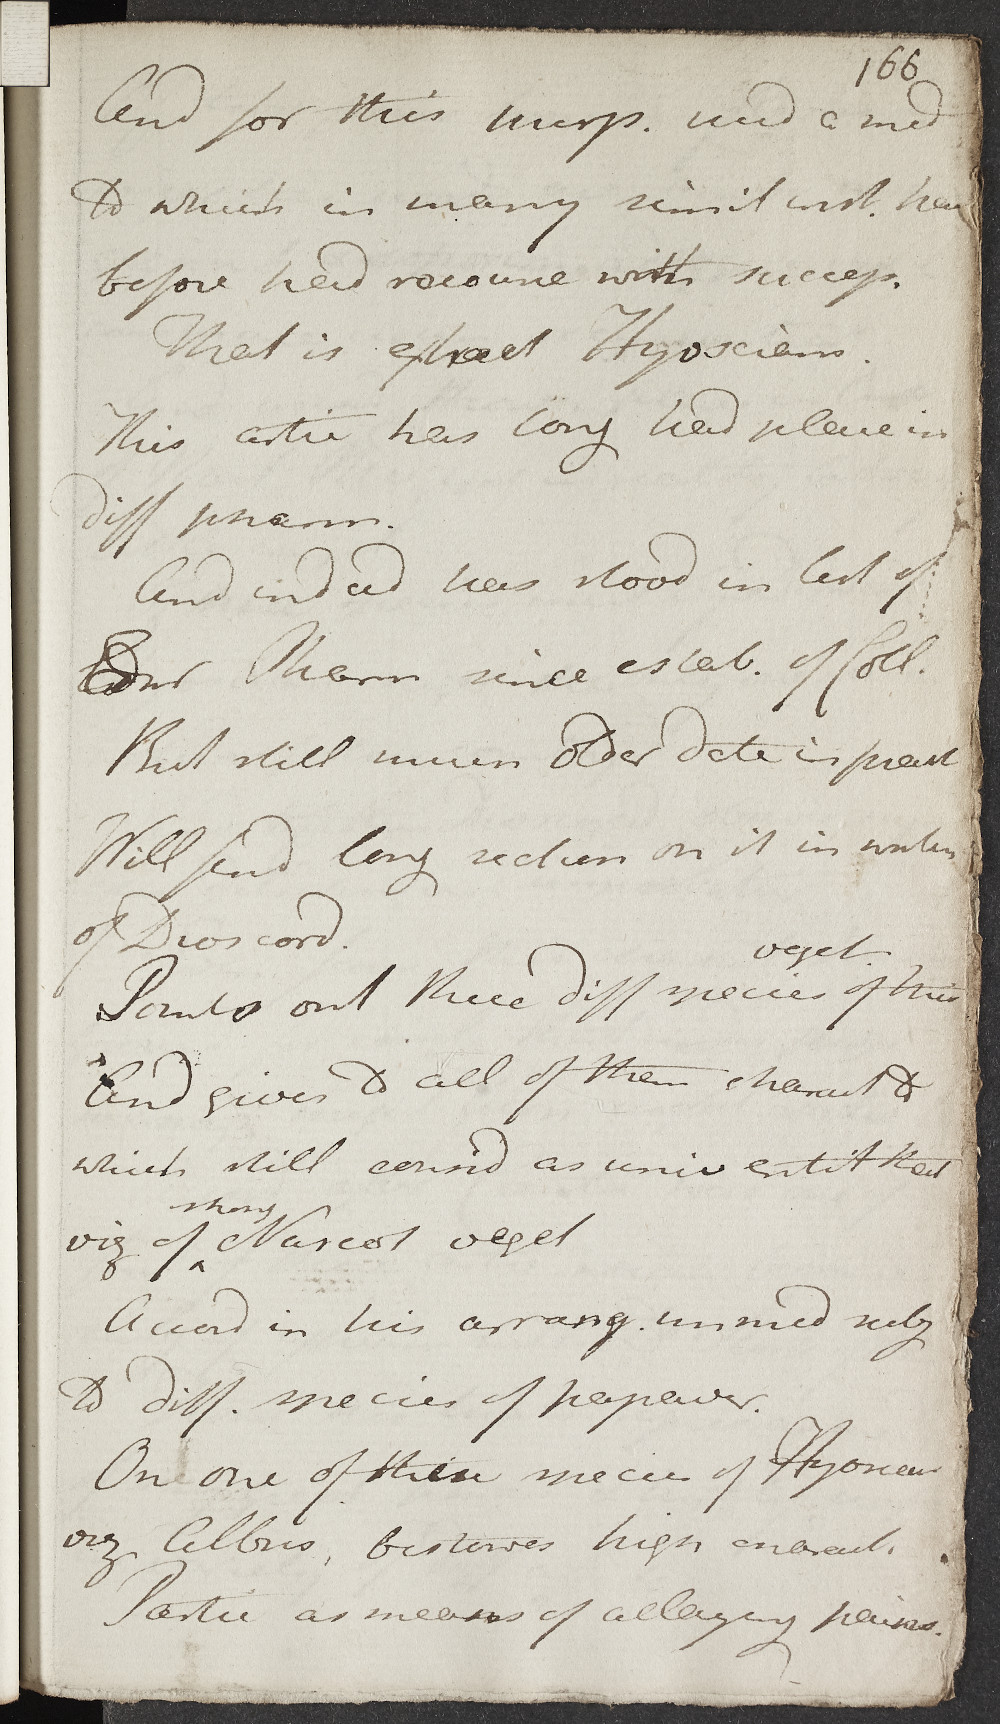 166
And for this purp. used a med
to which in many simil inst. have
before had recourse with success.
That is extract Hyosciam.
This artic has long had place in
diff pharm.
And indeed has stood in last of
Edinr Pharm since estab. of Coll.
But still much older date in pract
Will find long section on it in writn
of Dioscord.
Points out three diff species of this veget
And gives to all of them charact to
which still consid as univ entit that
viz of strong Narcot veget
Accord in his arrang. immed subj
to diff. species of papaver.
On one of these species of Hyosciam
viz Albus, bestowes high charact.
Partic as means of allaying pains.